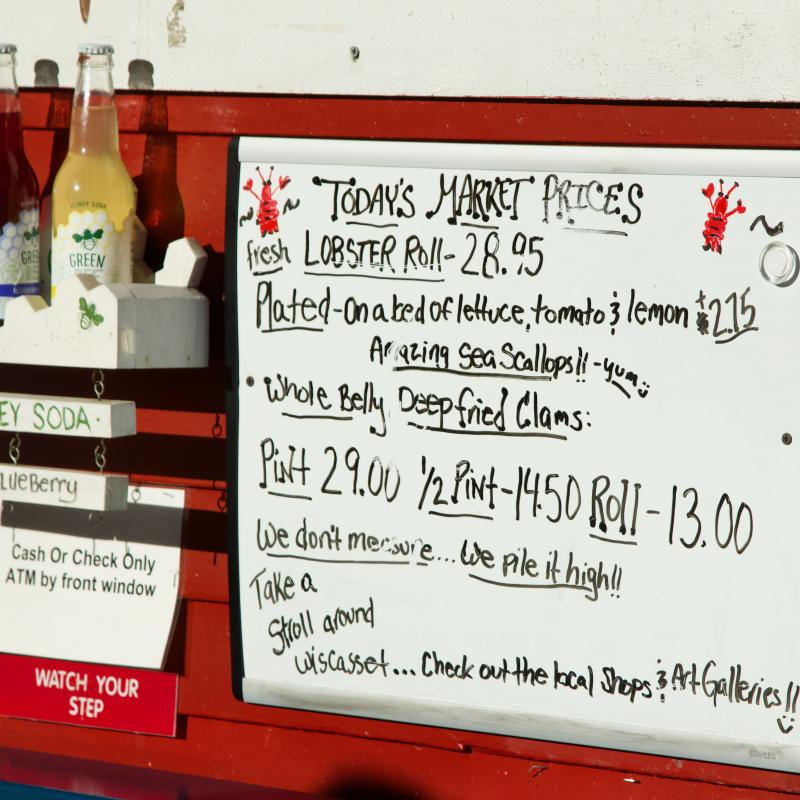 "TODAY'S MARKET PRICES
fresh LOBSTER Roll - 28.95
Plated - On a bed of lettuce, tomato & lemon + 2.75
Amazing Sea Scallops!! - yum
Whole Belly Deep fried Clams:
Pint 29.00 1/2 Pint - 14.50 Roll - 13.00
We don't measure... We pile it high!!
Take a
Stroll around
Wiscasset... Check out the local Shops & Art Galleries!!
STAPLES
HONEY SODA
GREEN
GREE
EY SODA
lueBerry
Cash Or Check Only
ATM by front window
WATCH YOUR
STEP